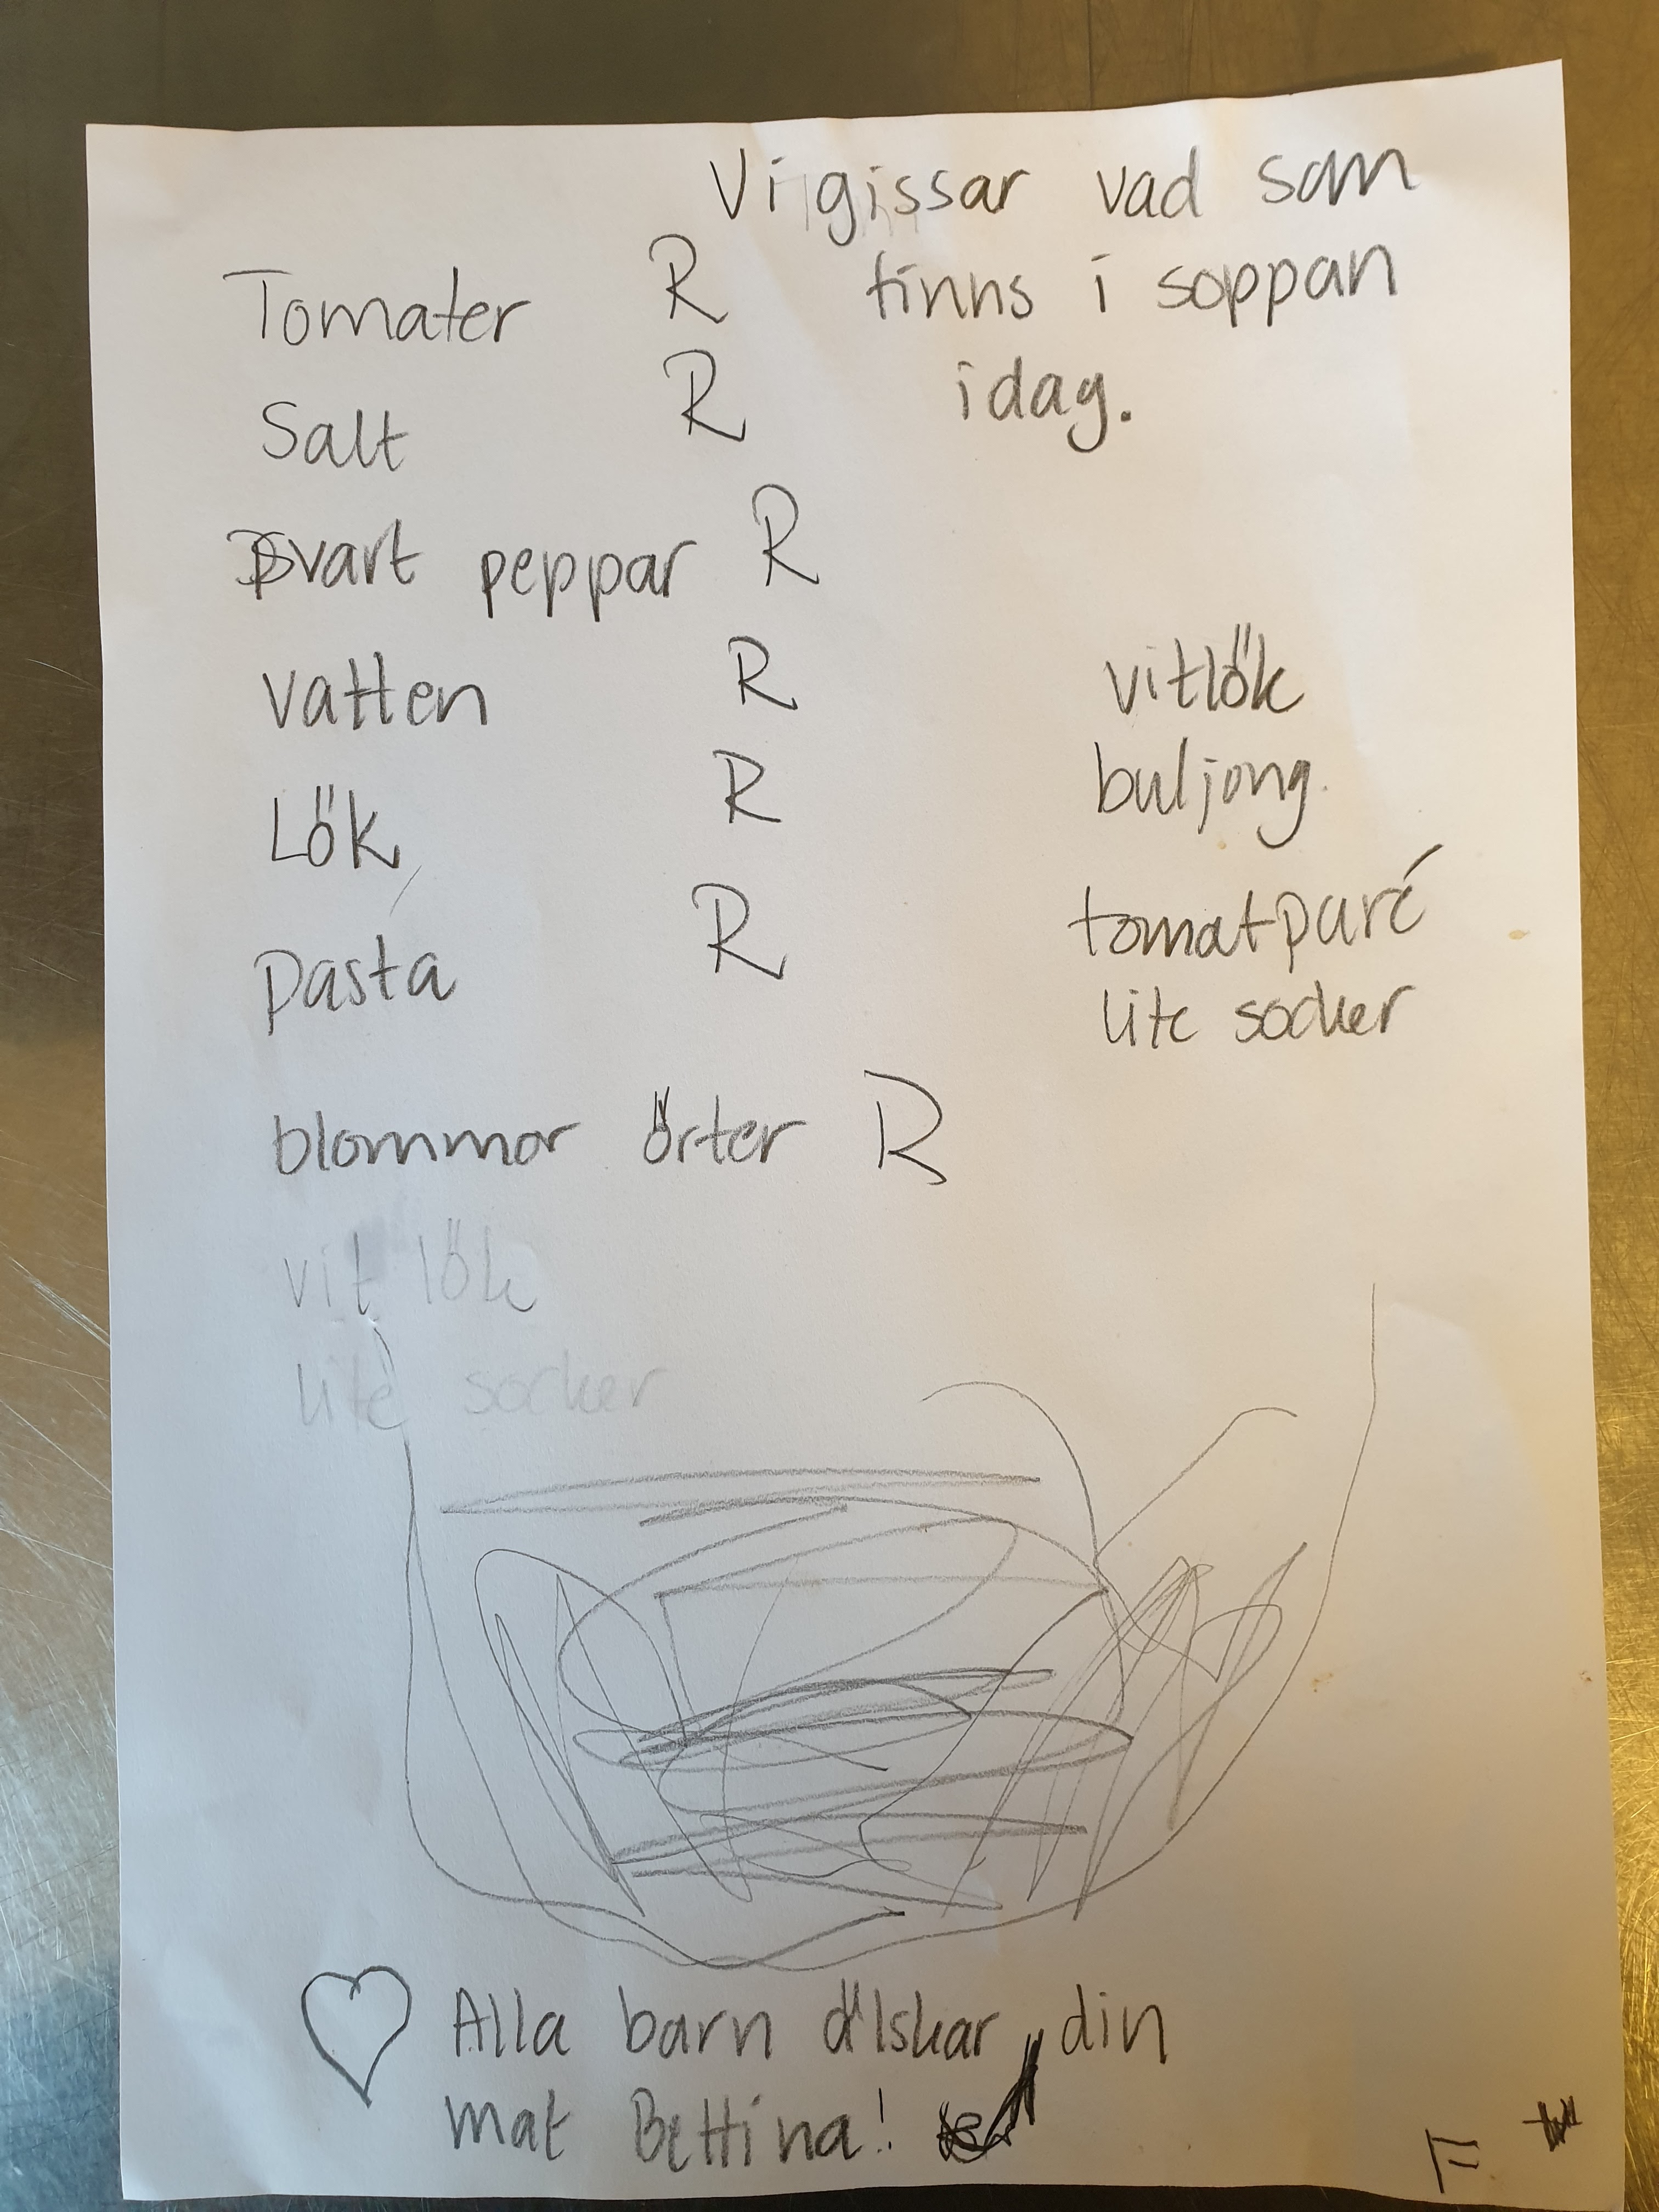 Vi gissar vad som
finns i soppan
idag.
Tomater R
Salt R
Svart peppar R
Vatten R
Lök R
Pasta R
blommor örter R
vitlök
buljong.
tomatpuré
lite socker
vit lök
lite socker
Alla barn älskar din
mat Bettina!